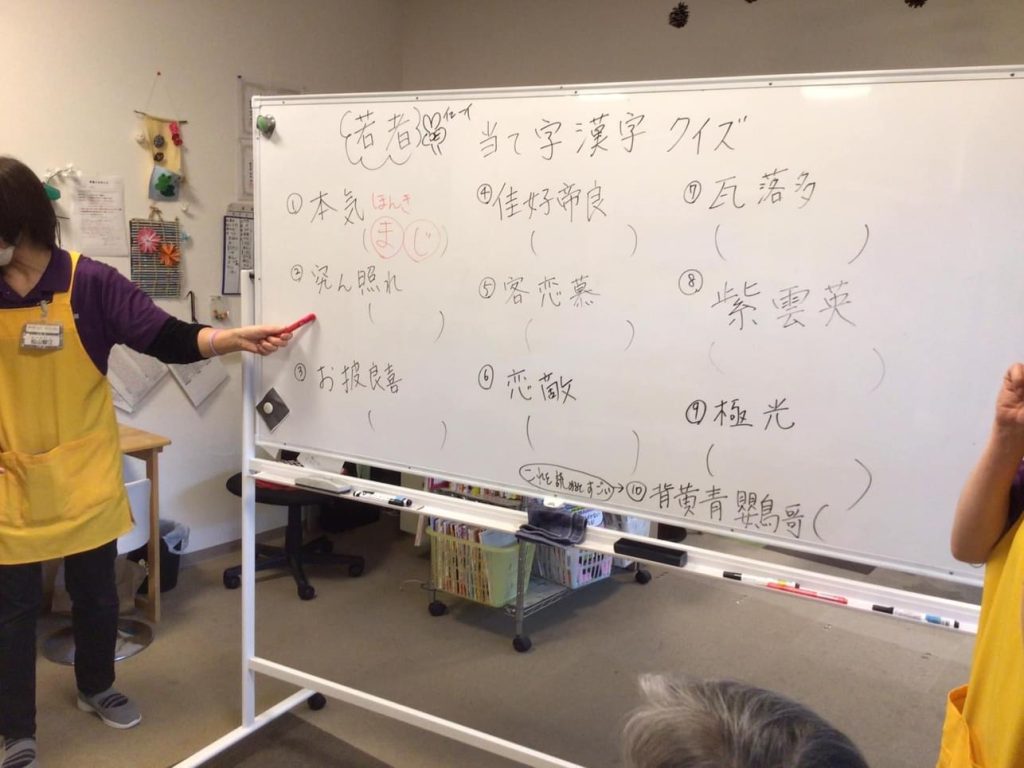 若者 イェーイ 当て字漢字 クイズ
① 本気 ほんき
(まじ)
② 究ん照れ
( )
③ お披良喜
( )
④ 佳好帝良
( )
⑤ 客恋慕
( )
⑥ 恋敵
( )
⑦ 瓦落多
( )
⑧ 紫雲英
( )
⑨ 極光
( )
これを読めたらすごい→⑩ 背黄青鸚哥(